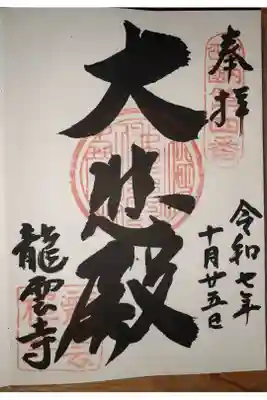 奉拝
令和七年
十月廿五日
大悲殿
龍雲寺